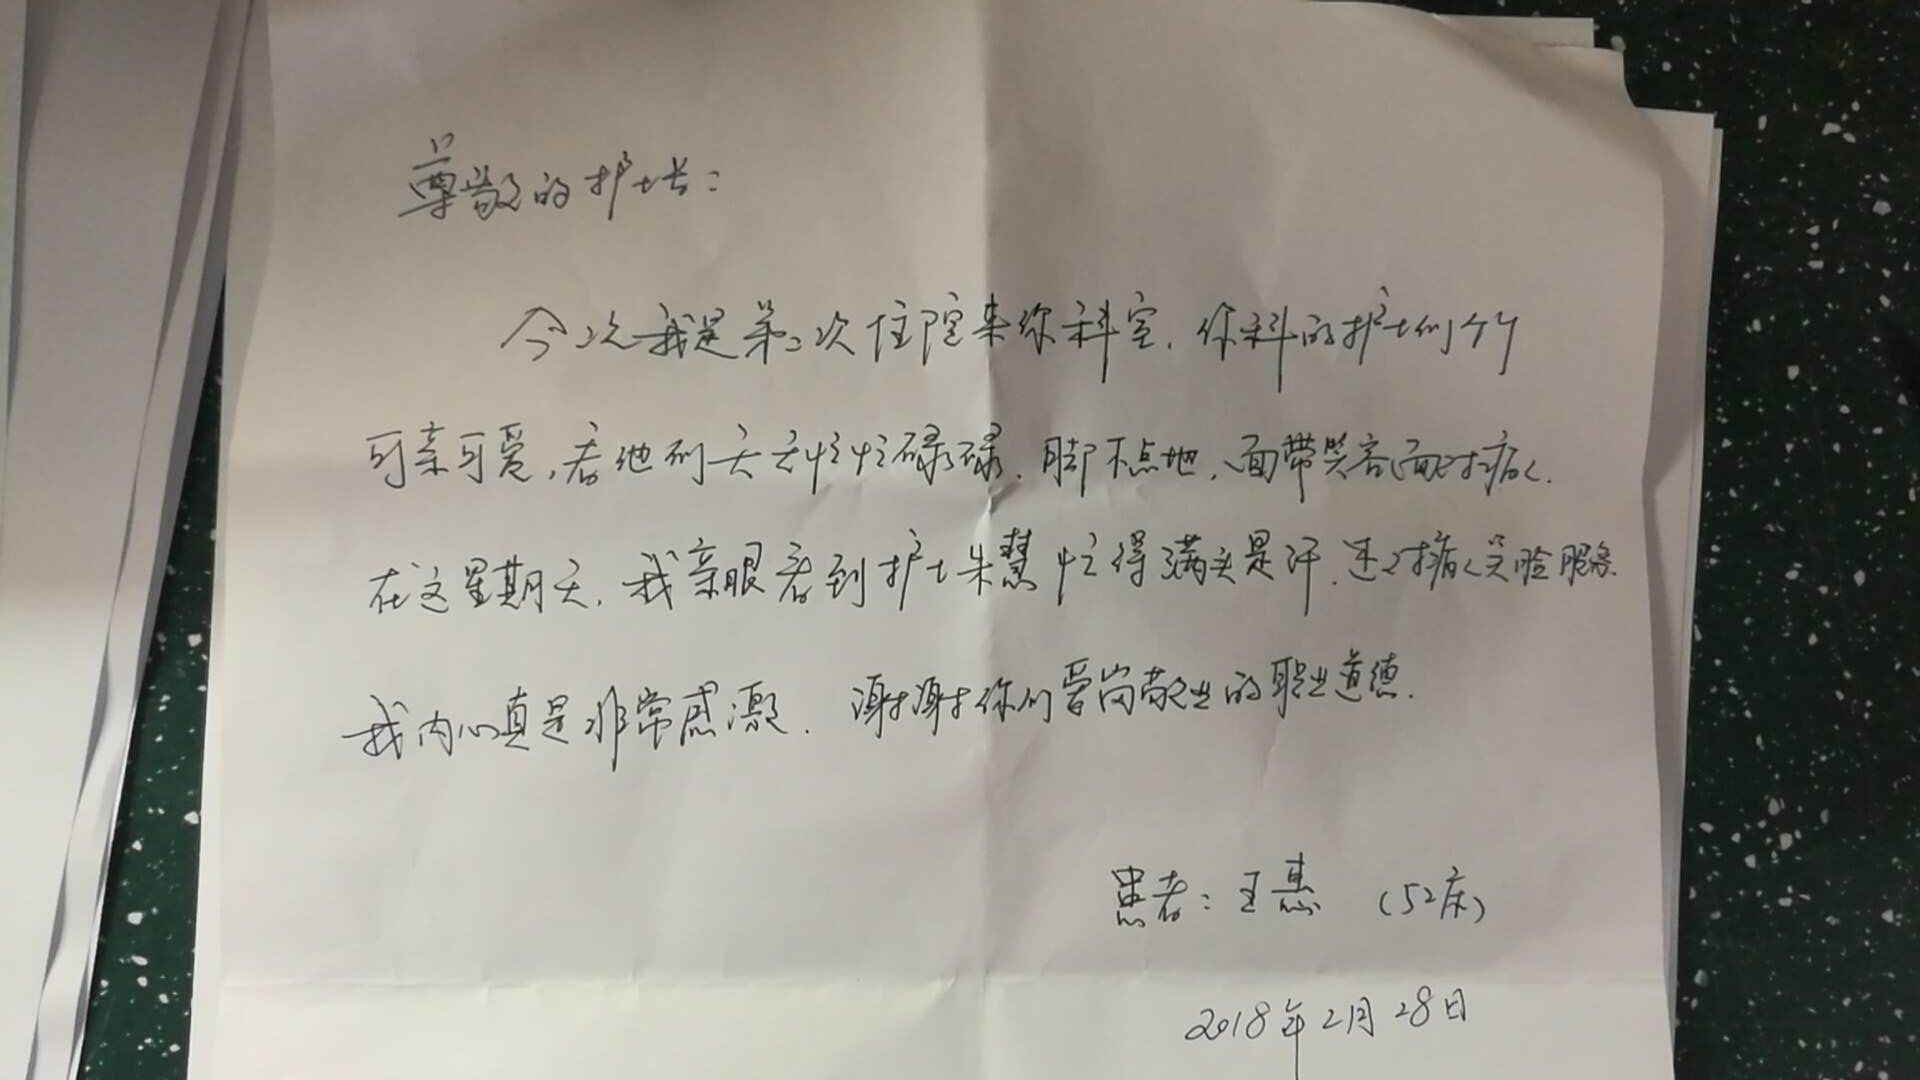 尊敬的护士长：
今次我是第二次住院来你科室.你科的护士们个个
可亲可爱,看他们天天忙忙碌碌.脚不点地,面带笑容面对病人.
在这星期天,我亲眼看到护士朱慧忙得满头是汗.还对病人笑脸服务.
我内心真是非常感激.谢谢你们爱岗敬业的职业道德.
患者：王惠（52床）
2018年2月28日